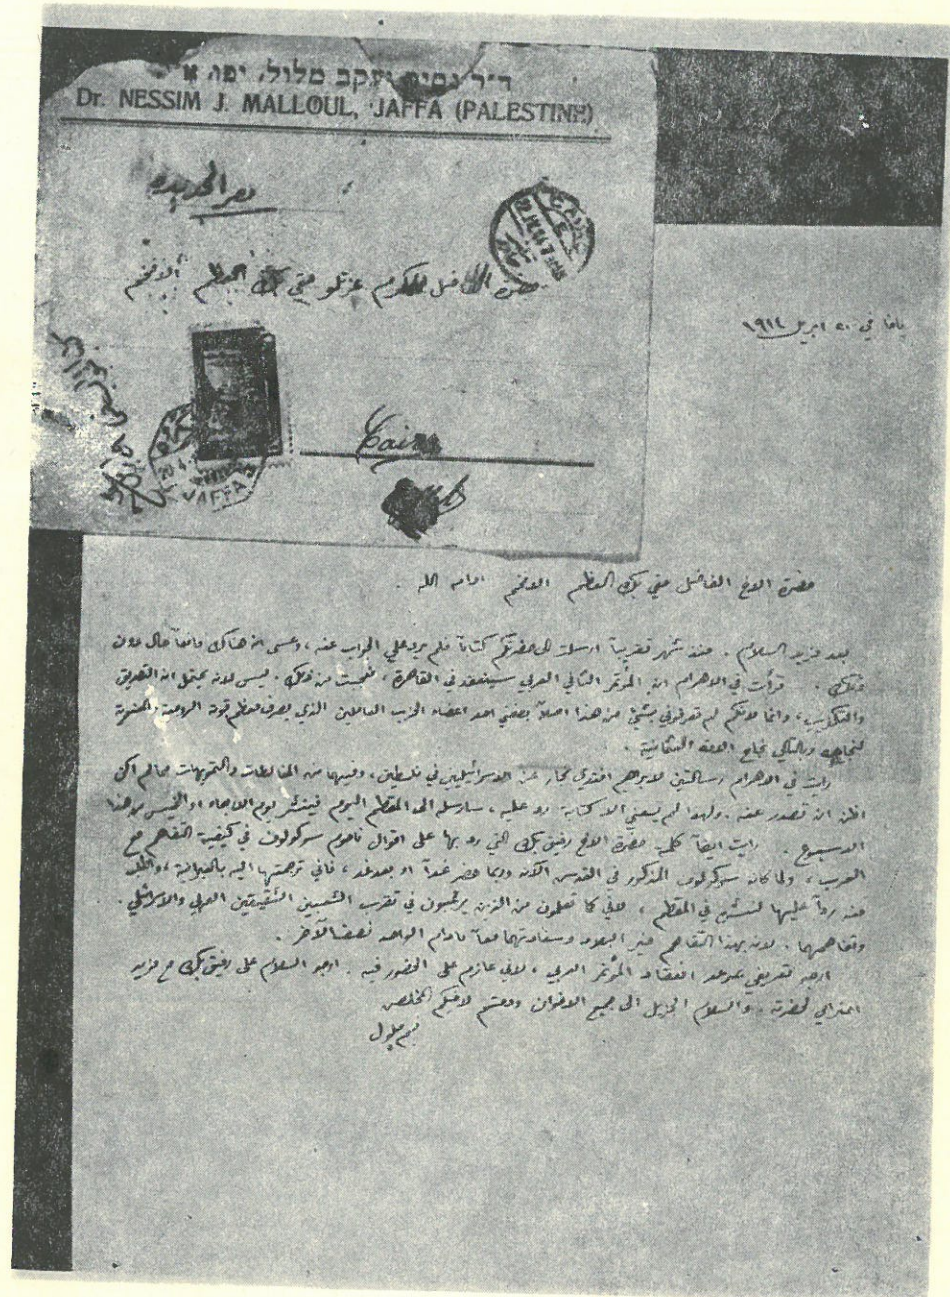 ד״ר נסים יעקב מלול, יפו, א״י
Dr. NESSIM J. MALLOUL, JAFFA (PALESTINE)
مصر الجديدة
حضرة الفاضل المكرم عزتلو حقي بك العظم الافخم
Cairo
JAFFA
يافا في ٢٠ ابريل ١٩١٤
حضرة الاخ الفاضل حقي بك العظم الافخم ادامه الله
بعد مزيد السلام . منذ شهر تقريباً ارسلت الى حضرتكم كتاباً فلم يرد علي الجواب عنه ، وعسى ان هناك مانعاً حال دون
ذلك . قرأت في الاهرام ان المؤتمر الثاني العربي سينعقد في القاهرة ، فعجبت من ذلك . ليس لانه يحتمل التصديق
والتكذيب ، وانما لانكم لم تعرفوني بشيء من هذا اصلاً بصفتي احد اعضاء الحزب العاملين الذي يصرف معظم قوته
لنجاحه وبالتالي نجاح الامة العثمانية .
رأيت في الاهرام رسالتين لابرهيم افندي نجار عن الاسرائيليين في فلسطين ، وفيهما من المغالطات والتمويهات ما لم اكن
اظن ان تصدر عنه . ولهذا لم يسعني الا كتابة رد عليه ، سارسله الى المقطم اليوم فينشر يوم الاربعاء او الخميس من هذا
الاسبوع . رأيت ايضاً كلمة حضرة الاخ رفيق بك التي رد بها على اقوال ناحوم سوكولوف في كيفية التفاهم مع
العرب ، ولما كان سوكولوف المذكور في القدس الآن وربما حضر غداً او بعد غد ، فاني ترجمتها اليه بالعبرانية ، واطلب
منه رداً عليها لنشره في المقطم ، لاني كما تعلمون من الذين يرغبون في تقرب الشعبين الشقيقين العربي والاسرائيلي .
وتفاهمهما . لان بهذا التفاهم خير البلاد وسعادتهما معاً ما دام الواحد نصف الآخر .
ارجو تعريفي بموعد انعقاد المؤتمر العربي ، لاني عازم على الحضور فيه . ارجو السلام على رفيق بك مع مزيد
احترامي لحضرته . والسلام الجزيل الى جميع الاخوان ودمتم لاخيكم المخلص
نسيم ملول